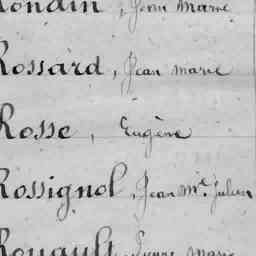 Rondin, Jean Marie
Rossard, Jean Marie
Rosse, Eugène
Rossignol, Jean Mie Julien
Rouault, Marie